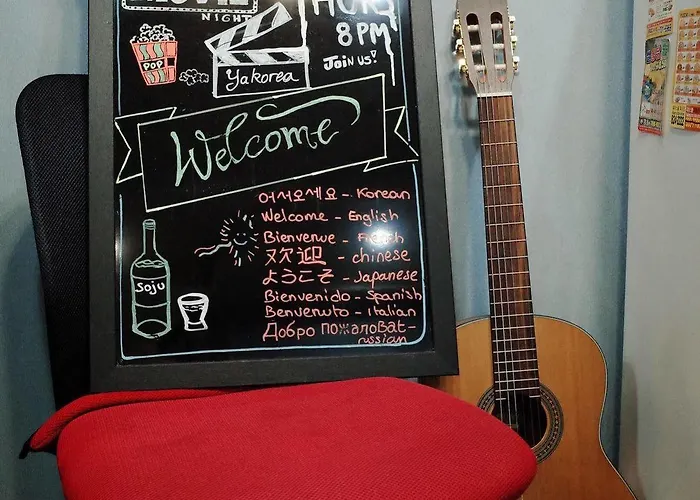 NIGHT
8PM
Join us!
POP
Yakorea
Welcome
어서오세요 - Korean
Welcome - English
Bienvenue - French
欢迎 - chinese
ようこそ - Japanese
Bienvenido - Spanish
Benvenuto - italian
Добро пожаловат -
russian
Soju